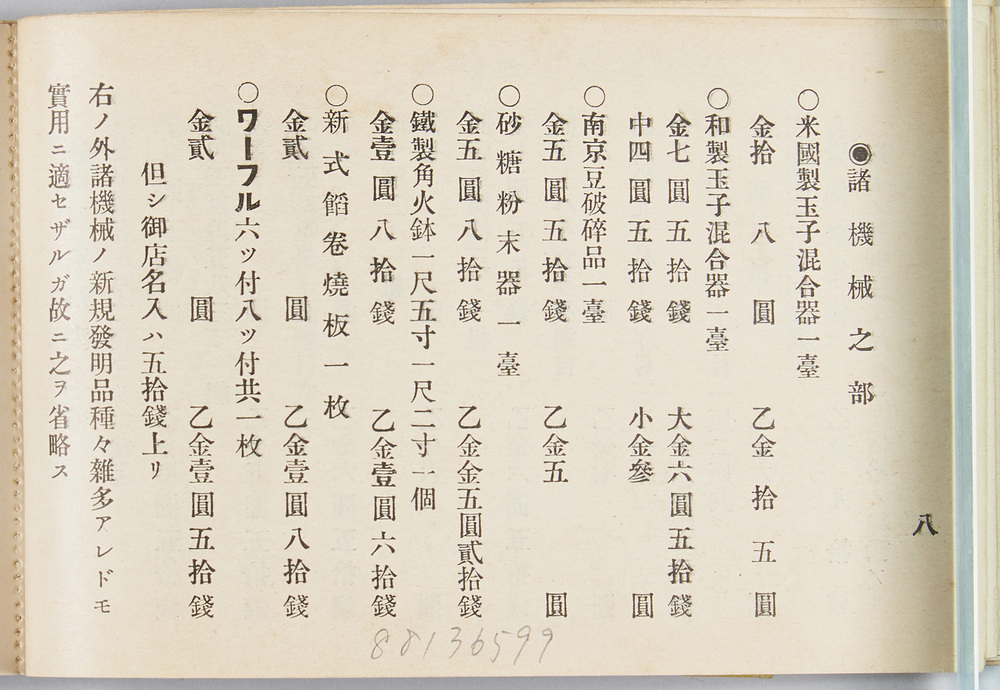 八
◉諸機械之部
○米國製玉子混合器一臺
金拾八圓　乙金拾五圓
○和製玉子混合器一臺
金七圓五拾錢　大金六圓五拾錢
中四圓五拾錢　小金參圓
○南京豆破碎品一臺
金五圓五拾錢　乙金五圓
○砂糖粉末器一臺
金五圓八拾錢　乙金金五圓貳拾錢
○鐵製角火鉢一尺五寸一尺二寸一個
金壹圓八拾錢　乙金壹圓六拾錢
○新式餡卷燒板一枚
金貳圓　乙金壹圓八拾錢
○ワーフル六ッ付八ッ付共一枚
金貳圓　乙金壹圓五拾錢
但シ御店名入ハ五拾錢上リ
右ノ外諸機械ノ新規發明品種々雜多アレドモ
實用ニ適セザルガ故ニ之ヲ省略ス
88136599